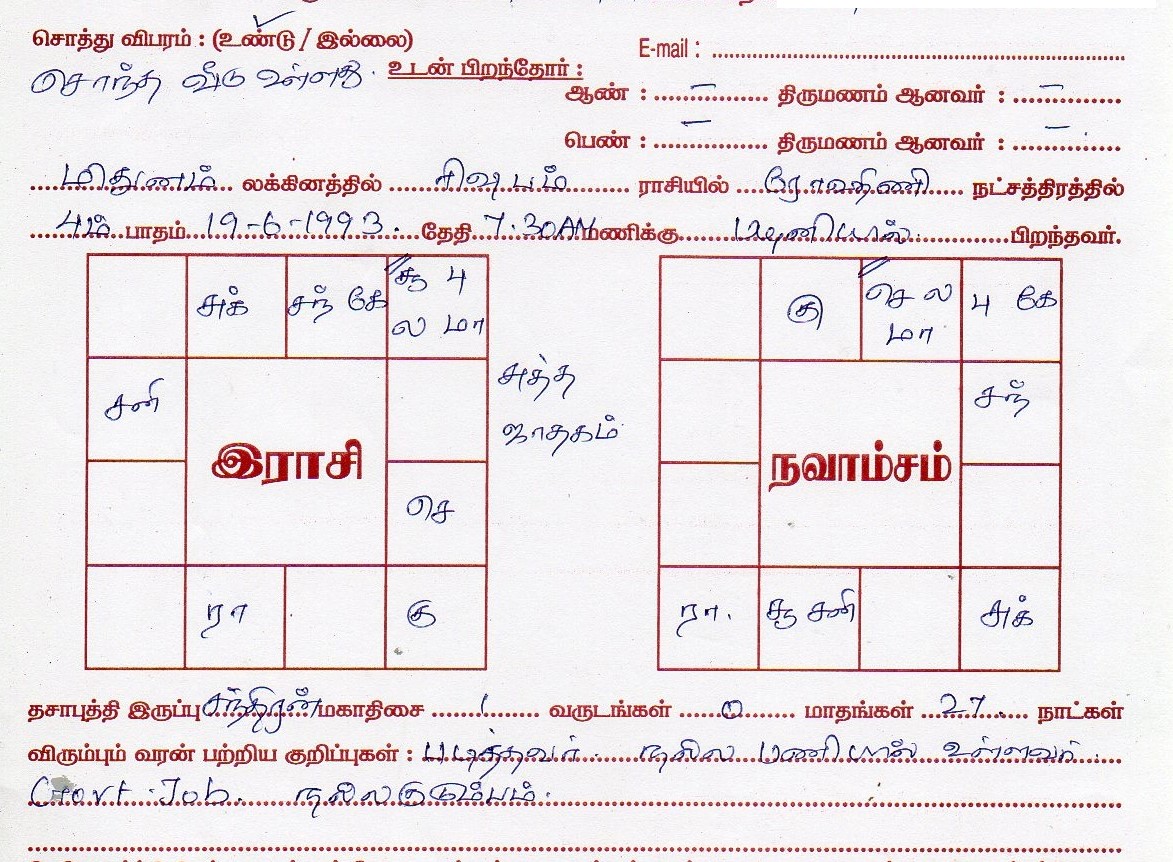 சொத்து விபரம் : (உண்டு / இல்லை) E-mail :
சொந்த வீடு உள்ளது. உடன் பிறந்தோர் :
ஆண் : – திருமணம் ஆனவர் : –
பெண் : – திருமணம் ஆனவர் : –
மிதுனம் லக்கினத்தில் ரிஷபம் ராசியில் ரோஹிணி நட்சத்திரத்தில்
4ம் பாதம் 19-6-1993. தேதி 7.30AM மணிக்கு பிறந்தவர்.
சுக் சந் கே சூ பு
ல மா
சனி
இராசி
செ
ரா கு
அத்த
ஜாதகம்
கு செ ல பு கே
மா
சந்
நவாம்சம்
ரா. சூ சனி சுக்
தசாபுத்தி இருப்பு சந்திரன் மகாதிசை 1 வருடங்கள் 0 மாதங்கள் 27 நாட்கள்
விரும்பும் வரன் பற்றிய குறிப்புகள் : படித்தவர். நல்ல பணியில் உள்ளவர்.
Govt Job. நல்லகுடும்பம்.